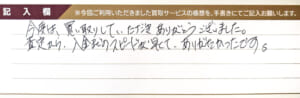 記入欄 ※今回ご利用いただきました買取サービスの感想を、手書きにてご記入お願いします。
今度は、買い取りしていただき ありがとうございました。
査定から、入金までのスピードが早くて、ありがたかったです。